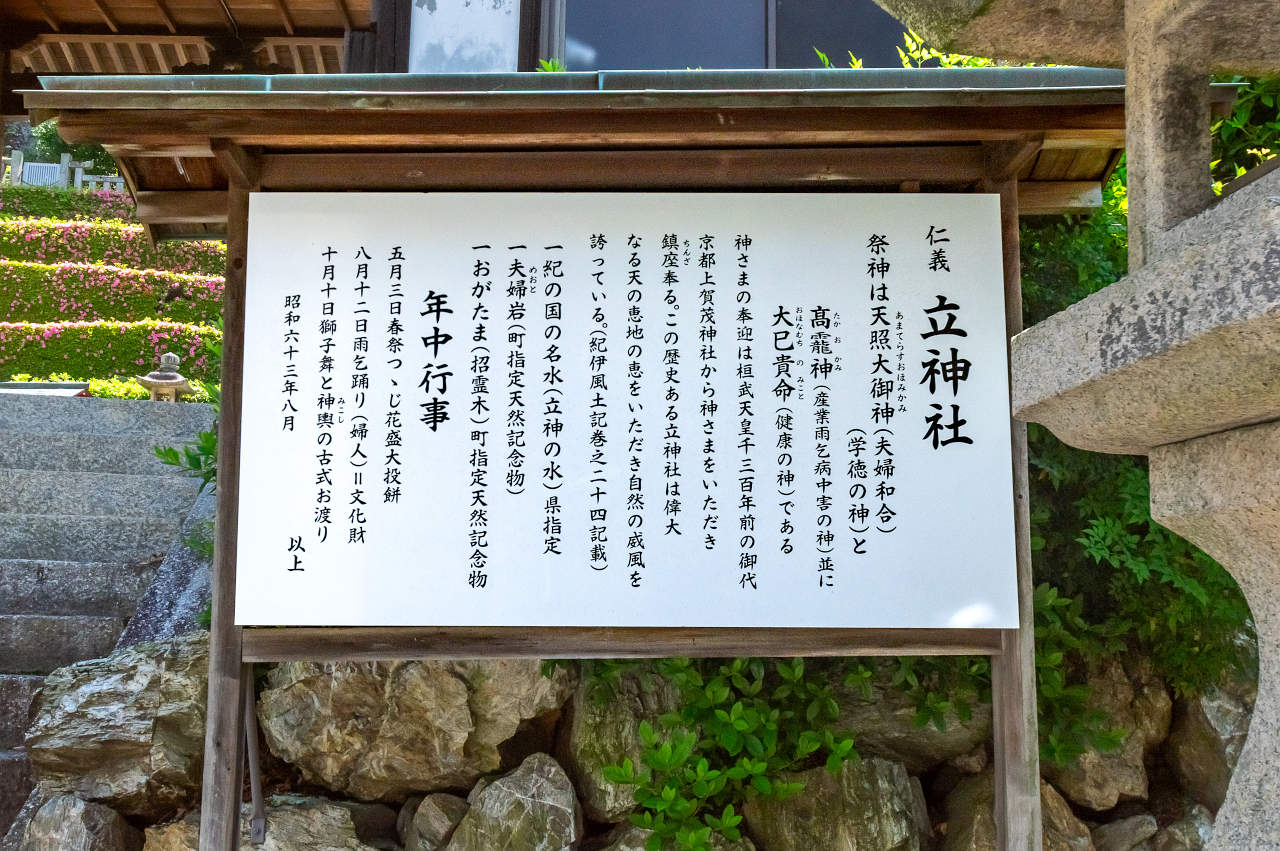 仁義 立神社
祭神は天照大御神(夫婦和合)
あまてらすおほみかみ
(学徳の神)と
髙龗神(産業雨乞病中害の神)並に
たかおかみ
大巳貴命(健康の神)である
おほなむちのみこと
神さまの奉迎は桓武天皇千三百年前の御代
京都上賀茂神社から神さまをいただき
鎮座奉る。この歴史ある立神社は偉大
ちんざ
なる天の恵地の恵をいただき自然の威風を
誇っている。(紀伊風土記巻之二十四記載)
一紀の国の名水(立神の水)県指定
一夫婦岩(町指定天然記念物)
めおと
一おがたま(招霊木)町指定天然記念物
年中行事
五月三日春祭つゝじ花盛大投餅
八月十二日雨乞踊り(婦人)=文化財
十月十日獅子舞と神輿の古式お渡り
みこし
昭和六十三年八月 以上